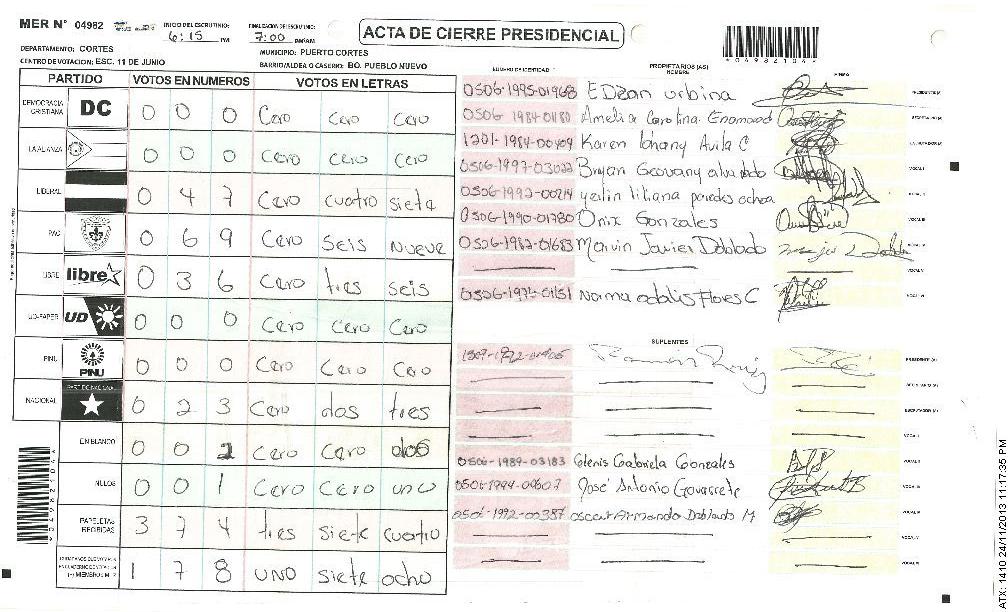 MER N° 04982 INICIO DEL ESCRUTINIO: 6:15 PM FINALIZACION DE ESCRUTINIO: 7:00 PM/AM
ACTA DE CIERRE PRESIDENCIAL
*04982104*
DEPARTAMENTO: CORTES MUNICIPIO: PUERTO CORTES
CENTRO DE VOTACION: ESC. 11 DE JUNIO BARRIO/ALDEA O CASERIO: BO. PUEBLO NUEVO
PARTIDO VOTOS EN NUMEROS VOTOS EN LETRAS
DEMOCRACIA CRISTIANA DC 0 0 0 Cero Cero Cero
LA ALIANZA 0 0 0 Cero Cero Cero
LIBERAL 0 4 7 Cero cuatro siete
PAC 0 6 9 Cero Seis Nueve
LIBRE libre 0 3 6 Cero tres seis
UD-FAPER UD 0 0 0 Cero Cero Cero
PINU PINU 0 0 0 Cero Cero Cero
NACIONAL PARTIDO NACIONAL 0 2 3 Cero dos tres
EN BLANCO 0 0 2 Cero Cero dos
NULOS 0 0 1 Cero Cero uno
PAPELETAS RECIBIDAS 3 7 4 tres siete cuatro
1 7 8 uno siete ocho
NUMERO DE IDENTIDAD PROPIETARIOS (AS) NOMBRE FIRMA
0506-1995-01968 Edzan urbina PRESIDENTE (A)
0506-1984-01180 Amelia Carolina Enamorad SECRETARIO (A)
1201-1984-00409 Karen Iohany Avila C ESCRUTADOR (A)
0506-1997-03022 Bryan Geovany alvarado VOCAL I
0506-1992-00214 yeslin liliana paredes ochoa VOCAL II
0506-1990-01780 Onix Gonzales VOCAL III
0506-1982-01683 Marvin Javier Doblado VOCAL IV
VOCAL V
0506-1975-01151 Norma odalis Flores C VOCAL VI
SUPLENTES
Ramón PRESIDENTE (A)
SECRETARIO (A)
ESCRUTADOR (A)
VOCAL I
0506-1989-03183 Glenis Gabriela Gonzales VOCAL II
José Antonio Govarrete VOCAL III
0506-1992-00387 oscar Armando Doblado M VOCAL IV
VOCAL V
VOCAL VI
*04982104*
ATX: 1410 24/11/2013 11:17:35 PM